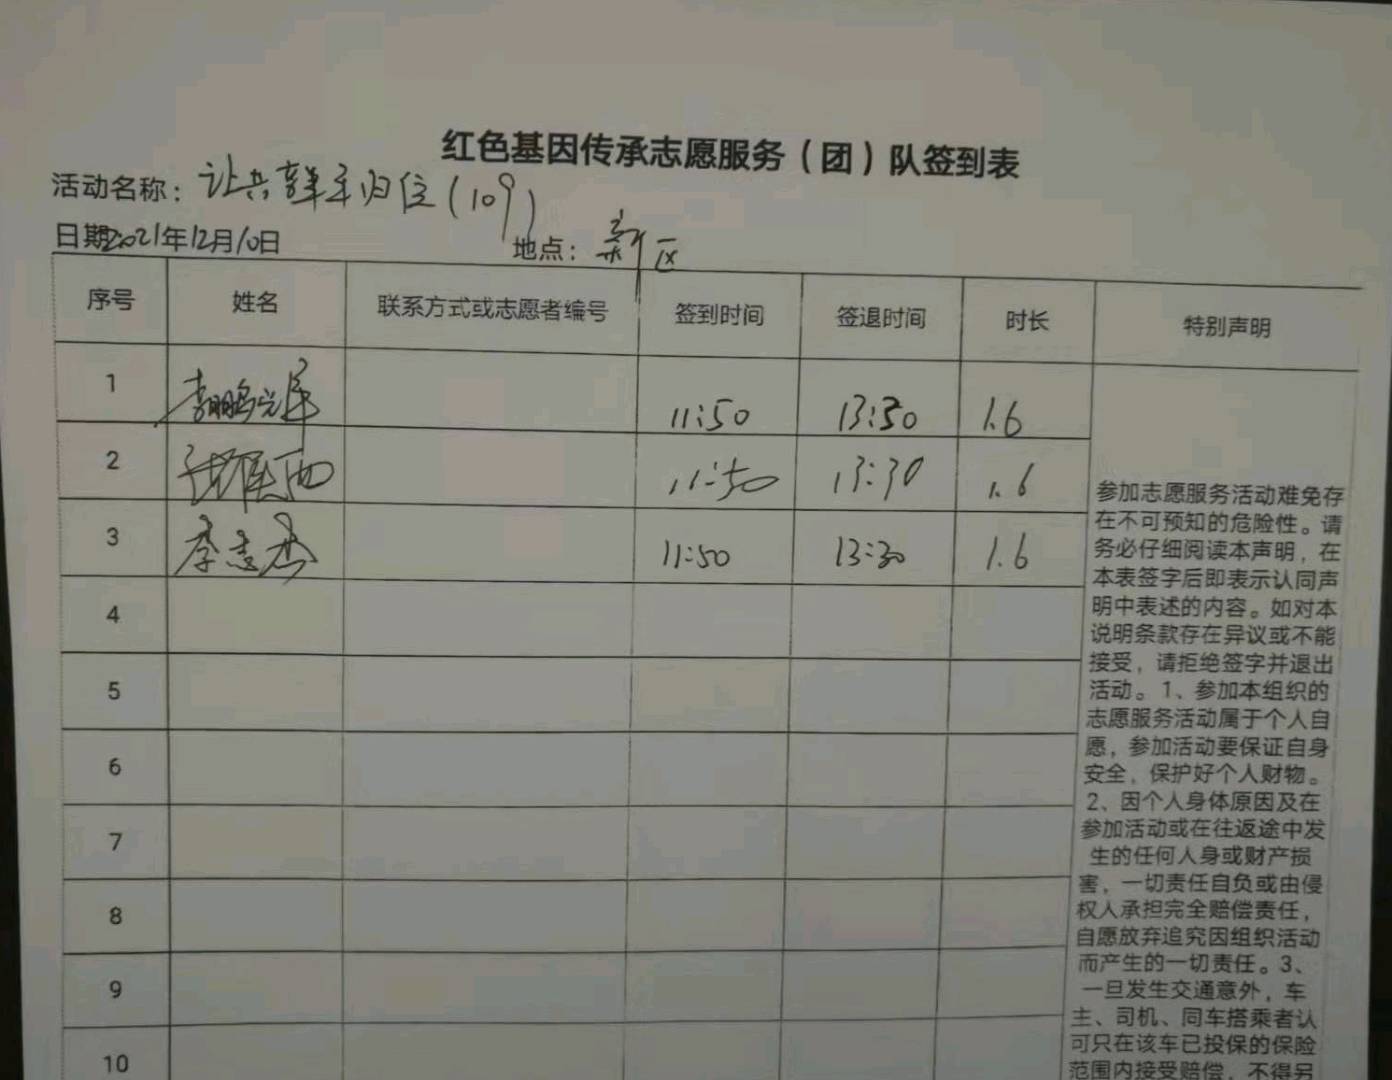 红色基因传承志愿服务（团）队签到表
活动名称：让共享单车归位(109)
日期2021年12月10日 地点：新区
序号 姓名 联系方式或志愿者编号 签到时间 签退时间 时长 特别声明
1 11:50 13:30 1.6
2 11:50 13:30 1.6
3 李志杰 11:50 13:30 1.6
4
5
6
7
8
9
10
参加志愿服务活动难免存
在不可预知的危险性。请
务必仔细阅读本声明，在
本表签字后即表示认同声
明中表述的内容。如对本
说明条款存在异议或不能
接受，请拒绝签字并退出
活动。1、参加本组织的
志愿服务活动属于个人自
愿，参加活动要保证自身
安全，保护好个人财物。
2、因个人身体原因及在
参加活动或在往返途中发
生的任何人身或财产损
害，一切责任自负或由侵
权人承担完全赔偿责任，
自愿放弃追究因组织活动
而产生的一切责任。3、
一旦发生交通意外，车
主、司机、同车搭乘者认
可只在该车已投保的保险
范围内接受赔偿，不得另